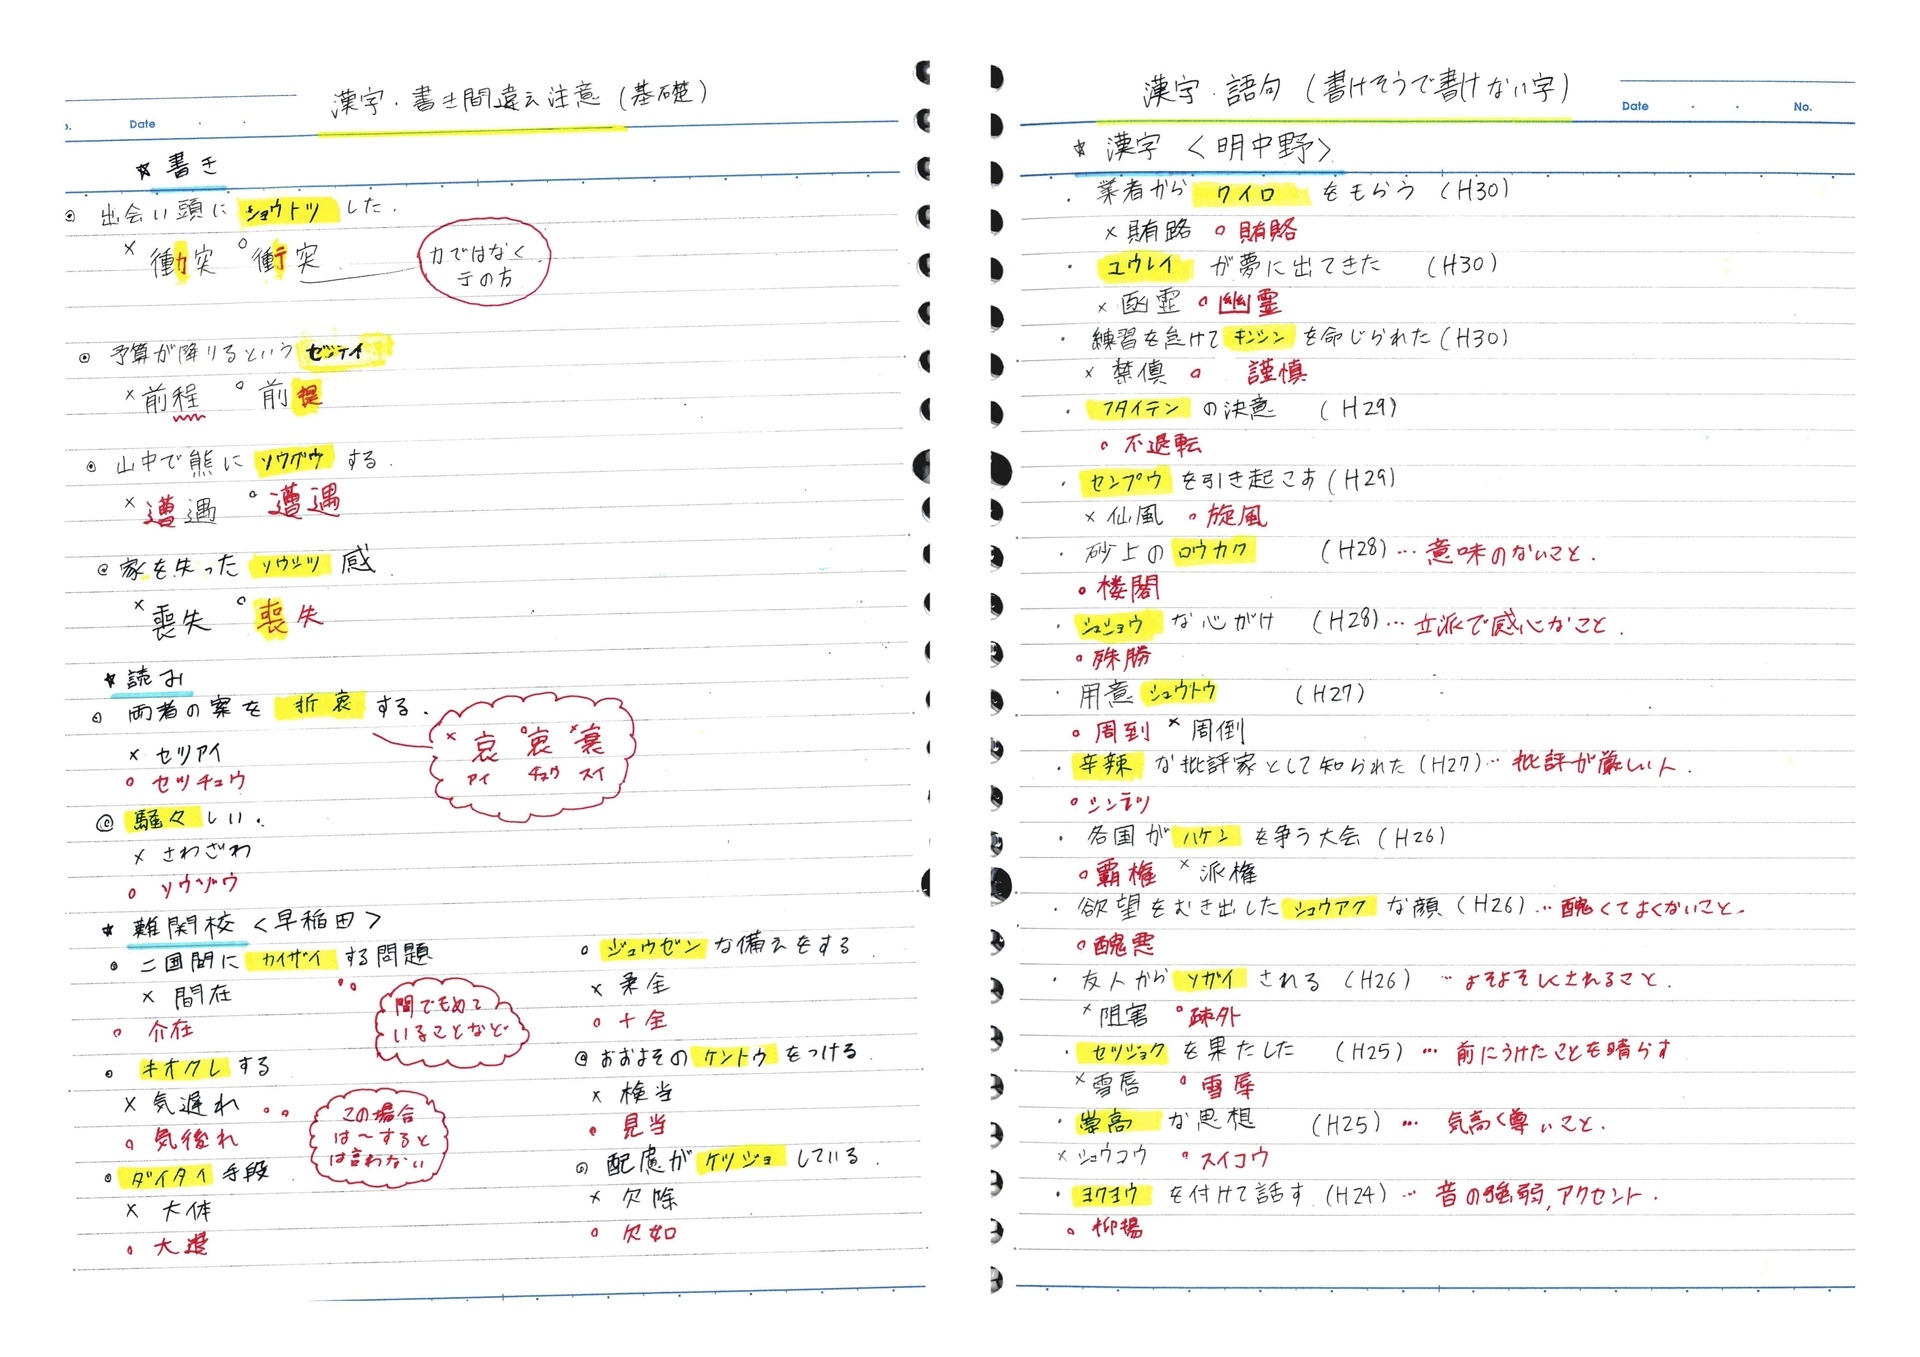 漢字・書き間違え注意(基礎)
o. Date
☆書き
◎ 出会い頭に ショウトツ した.
× 衝突 ○ 衝突
力ではなく
テの方
◎ 予算が降りるという ゼンテイ
× 前程 ○ 前提
◎ 山中で熊に ソウグウ する.
× 遭遇 ○ 遭遇
◎ 家を失った ソウシツ 感
× 喪失 ○ 喪失
★読み
◎ 両者の案を 折衷 する.
× セツアイ
○ セッチュウ
× 哀 ○ 衷 × 衰
アイ チュウ スイ
◎ 騒々 しい.
× さわざわ
○ ソウゾウ
★ 難関校 <早稲田>
◎ 二国間に カイザイ する問題
× 間在
○ 介在
間でもめて
いることなど
◎ キオクレ する
× 気遅れ
○ 気後れ
この場合
は〜すると
は言わない
◎ ダイタイ 手段
× 大体
○ 大退
○ ジュウゼン な備えをする
× 柔全
○ 十全
◎ おおよその ケントウ をつける
× 検当
○ 見当
◎ 配慮が ケツジョ している.
× 欠除
○ 欠如
漢字・語句(書けそうで書けない字)
Date No.
☆ 漢字 <明中野>
・ 業者から ワイロ をもらう (H30)
× 賄路 ○ 賄賂
・ ユウレイ が夢に出てきた (H30)
× 凾霊 ○ 幽霊
・ 練習を怠けて キンシン を命じられた(H30)
× 禁慎 ○ 謹慎
・ フタイテン の決意 (H29)
○ 不退転
・ センプウ を引き起こす(H29)
× 仙風 ○ 旋風
・ 砂上の ロウカク (H28)… 意味のないこと.
○ 楼閣
・ シュショウ な心がけ (H28)… 立派で感心なこと.
○ 殊勝
・ 用意 シュウトウ (H27)
○ 周到 × 周倒
・ 辛辣 な批評家として知られた(H27)… 批評が厳しい人.
○ シンラツ
・ 各国が ハケン を争う大会 (H26)
○ 覇権 × 派権
・ 欲望をむき出した シュウアク な顔 (H26)… 醜くてよくないこと.
○ 醜悪
・ 友人から ソガイ される (H26) … よそよそしくされること.
× 阻害 ○ 疎外
・ セツジョク を果たした (H25) … 前にうけたことを晴らす
× 雪唇 ○ 雪辱
・ 崇高 な思想 (H25) … 気高く尊いこと.
× シュウコウ ○ スイコウ
・ ヨクヨウ を付けて話す.(H24)… 音の強弱,アクセント.
○ 抑揚